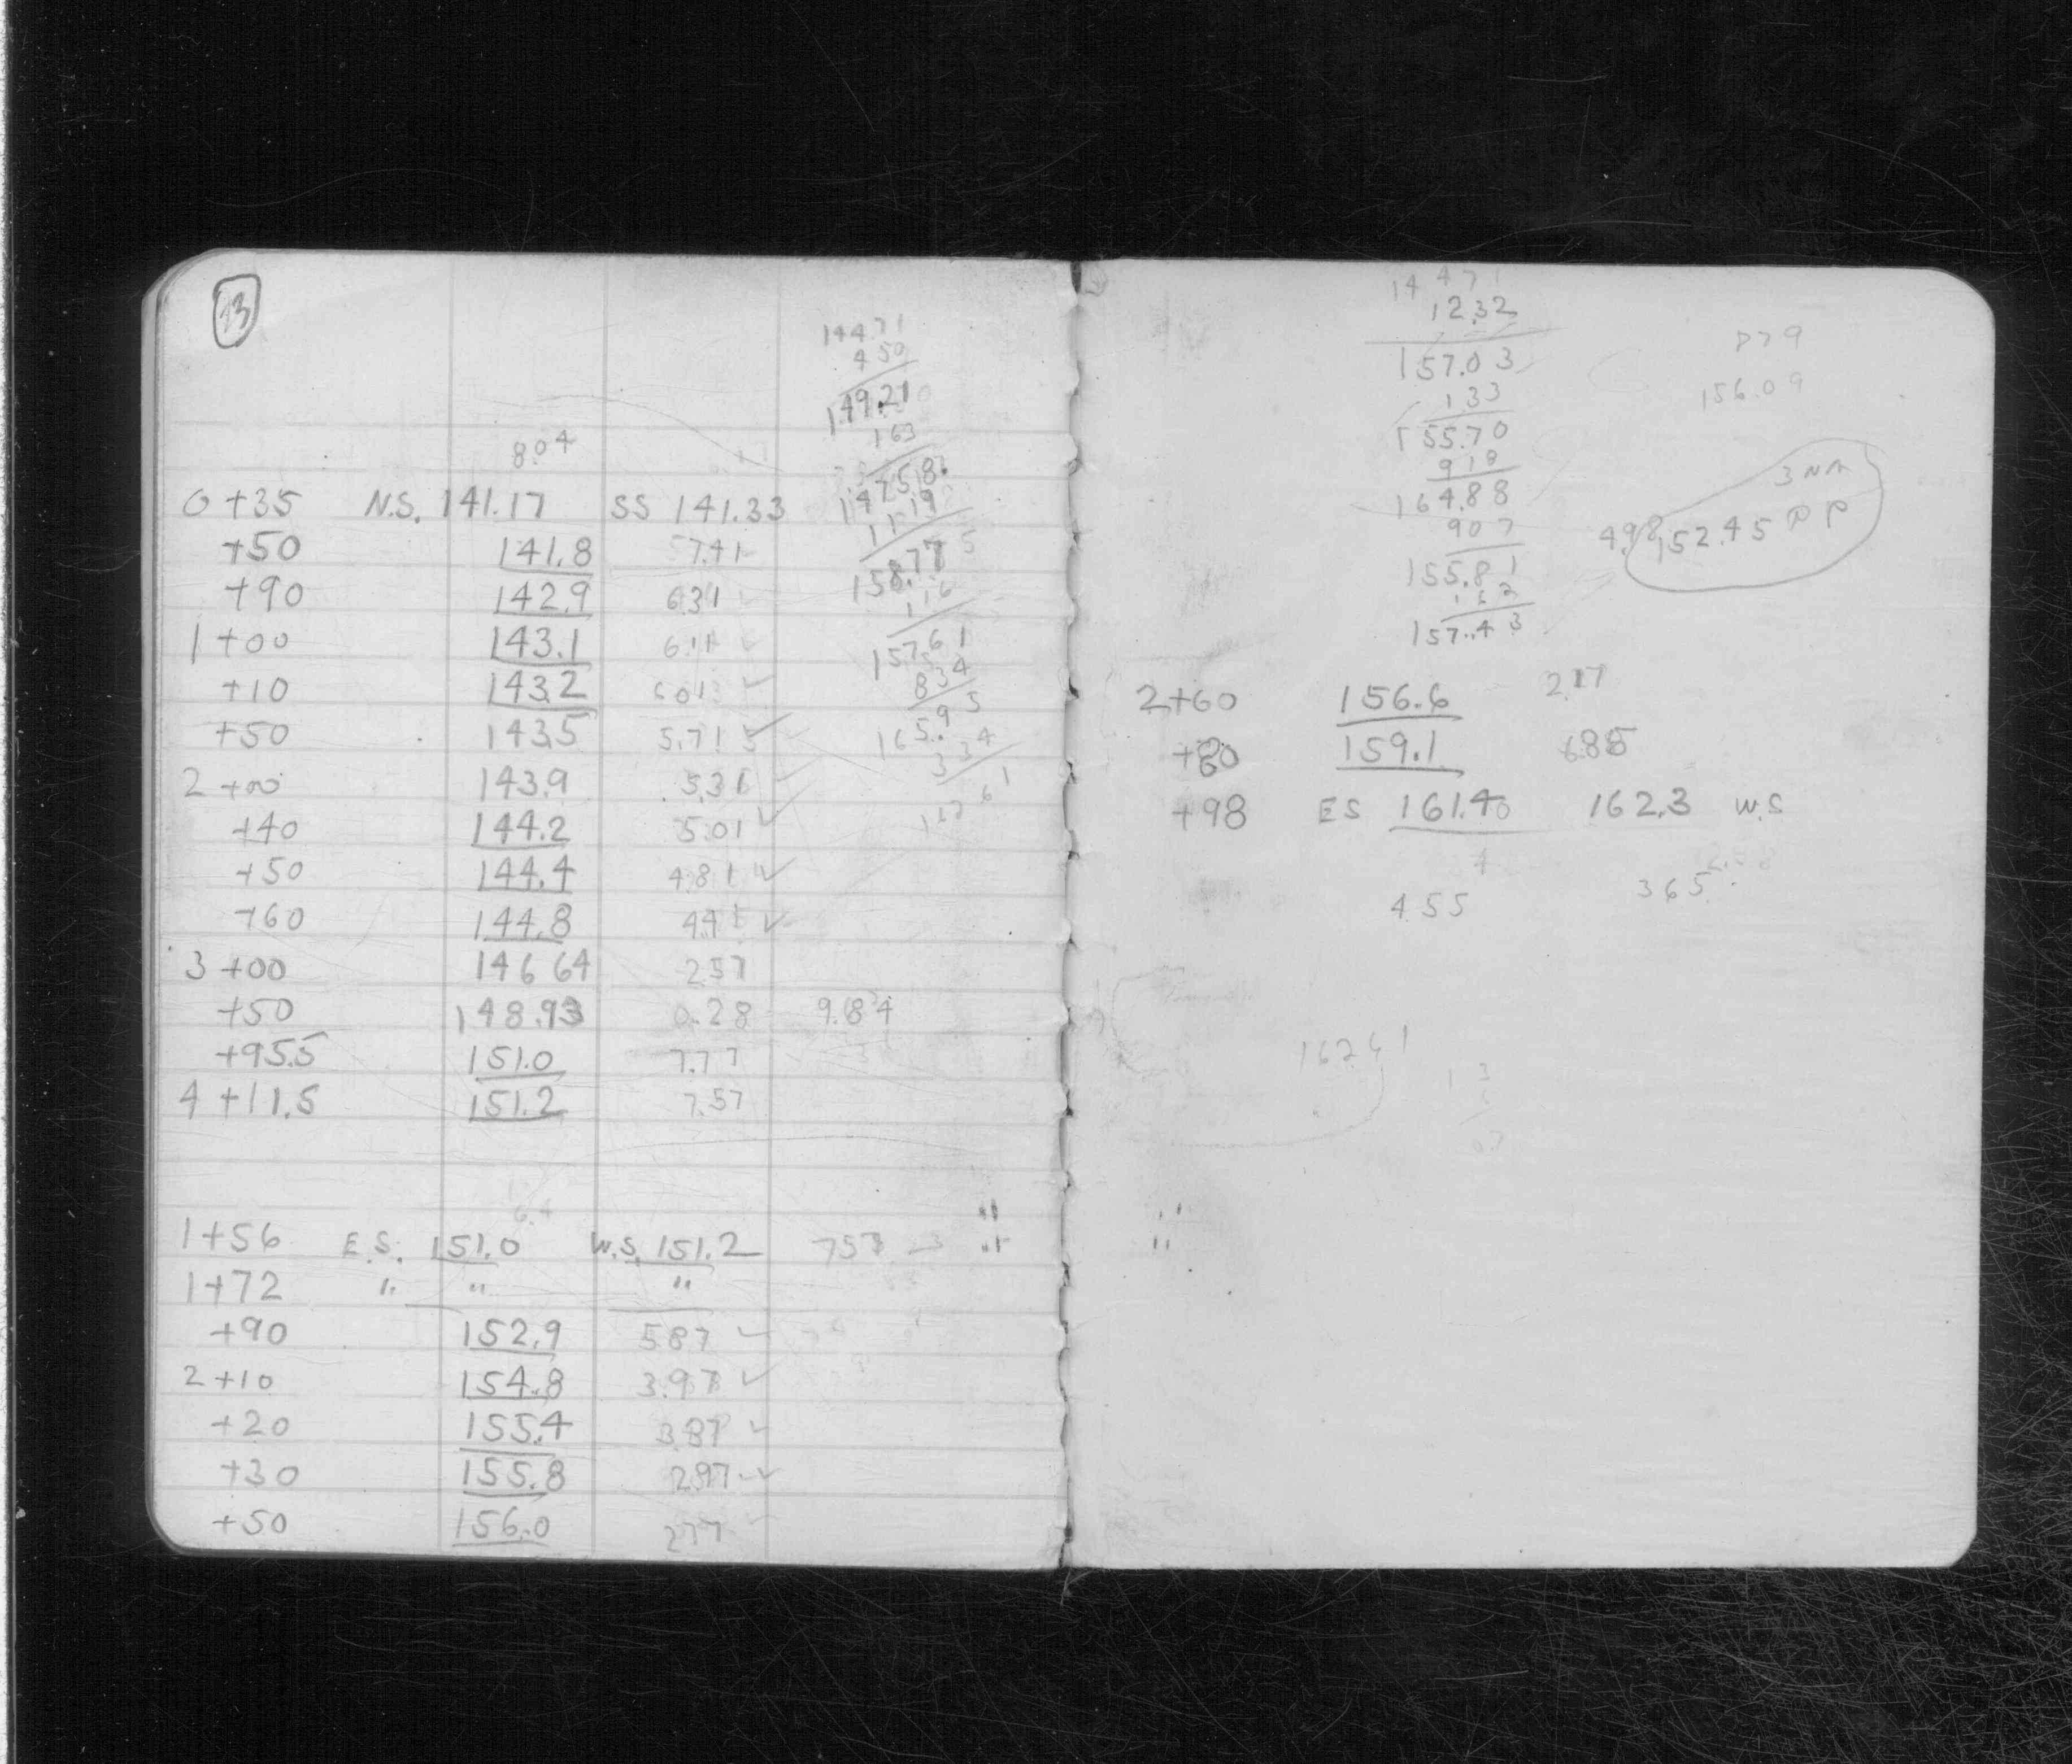 13
144.71
4 50
149.21
163
147.58
11 19
158.77
1 16
157.61
8 34
165.95
3 34
8.04
0+35 N.S. 141.17 SS 141.33
+50 141.8 7.41
+90 142.9 6.31
1+00 143.1 6.11
+10 143.2 6.01
+50 143.5 5.71
2+00 143.9 5.31
+40 144.2 5.01
+50 144.4 4.81
+60 144.8 4.41
3+00 146 64 2.57
+50 148.93 0.28 9.84
+95.5 151.0 7.77
4+11.5 151.2 7.57
1+56 E.S. 151.0 W.S. 151.2 757
1+72 " " "
+90 152.9 5.87
2+10 154.8 3.97
+20 155.4 3.37
+30 155.8 2.97
+50 156.0 2.77
144 71
12.32
157.03
1.33
155.70
9 18
164.88
9 07
155.81
1 62
157.43
879
156.09
498 152.45
2+60 156.6 2.17
+80 159.1 6.85
+98 ES 161.40 162.3 W.S
4
4.55 3 65